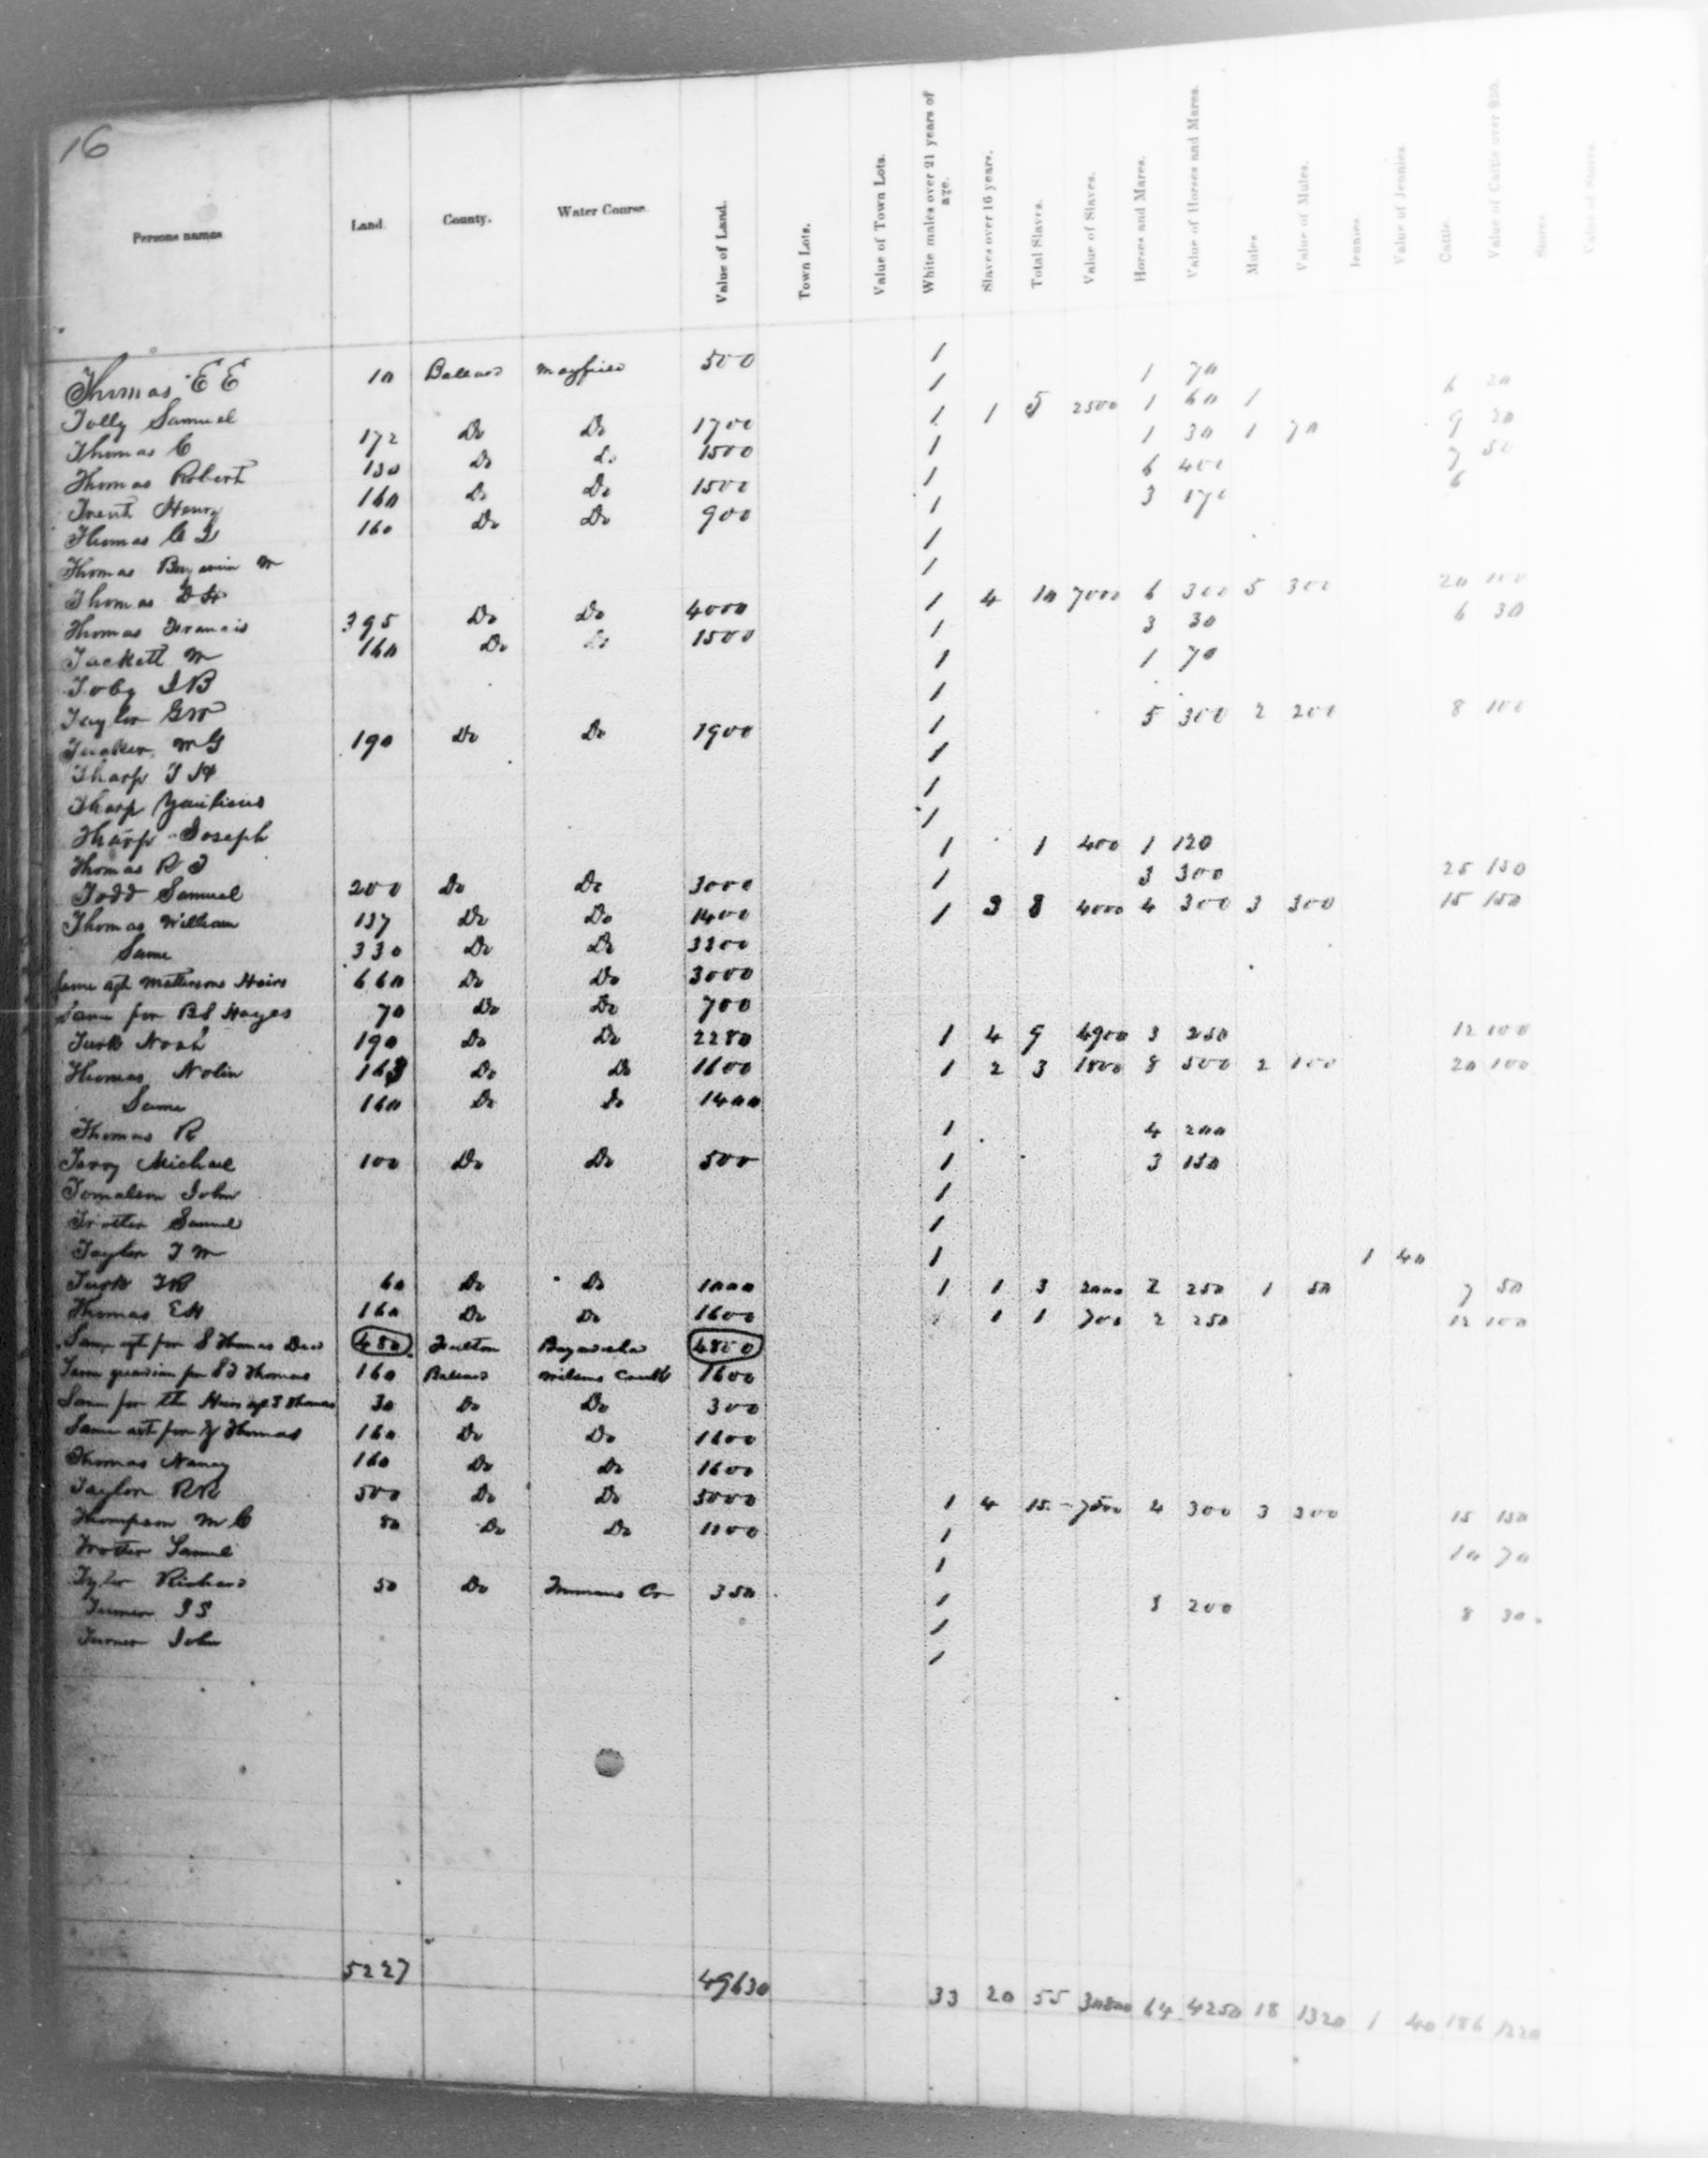 16
Persons names Land. County. Water Course. Value of Land. Town Lots. Value of Town Lots. White males over 21 years of age. Slaves over 16 years. Total Slaves. Value of Slaves. Horses and Mares. Value of Horses and Mares. Mules Value of Mules. Jennies Value of Jennies. Cattle Value of Cattle over $50. Stores
Thomas E E 10 Ballard Mayfield 500 1 1 70
Tolly Samuel 1 1 60 1 6 20
Thomas C 172 Do Do 1700 1 1 5 2500 1 30 1 70 9 20
Thomas Robert 150 Do Do 1500 1 6 400 7 50
Trent Henry 160 Do Do 1500 1 3 170 6
Thomas 160 Do Do 900 1
Thomas Benjamin M 1
Thomas 1
Thomas Francis 395 Do Do 4000 1 4 10 7000 6 300 5 300 20 100
Tackett M 160 Do Do 1500 1 3 30 6 30
Toby J B 1 1 70
Taylor G W 1
Tucker M G 190 Do Do 1900 1 5 300 2 200 8 100
Tharp J H 1
Tharp 1
Tharp Joseph 1
Thomas R J 1 1 400 1 120
Todd Samuel 200 Do Do 3000 1 3 300 25 150
Thomas William 137 Do Do 1400 1 3 8 4000 4 300 3 300 15 150
Same 330 Do Do 3300
Same agt Mattersons Heirs 660 Do Do 3000
Same for B S Hayes 70 Do Do 700
Turk Noah 190 Do Do 2280 1 4 9 4900 3 250 12 100
Thomas Nolin 163 Do Do 1600 1 2 3 1800 8 500 2 100 20 100
Same 160 Do Do 1400
Thomas R 1 4 200
Terry Michael 100 Do Do 500 1 3 150
Tomalson John 1
Trotter Samuel 1
Taylor J M 1 1 40
Turk J B 60 Do Do 1000 1 1 3 2000 2 250 1 50 7 50
Thomas E H 160 Do Do 1600 1 1 700 2 250 12 100
Same agt for S Thomas Decd 480 Fulton 4800
Same guardian for S J Thomas 160 Ballard Wilsons Creek 1600
Same for the Heirs of S Thomas 30 Do Do 300
Same agt for Thomas 160 Do Do 1600
Thomas Nancy 160 Do Do 1600
Taylor R R 500 Do Do 5000 1 4 15 7500 4 300 3 300 15 150
Thompson M C 80 Do Do 1100 1 10 70
Trotter Samuel 1
Tyler Richard 50 Do Cr 350 1 3 200 8 30
Turner J S 1
Turner John 1
5227 49630 33 20 55 30800 64 4250 18 1320 1 40 186 1220